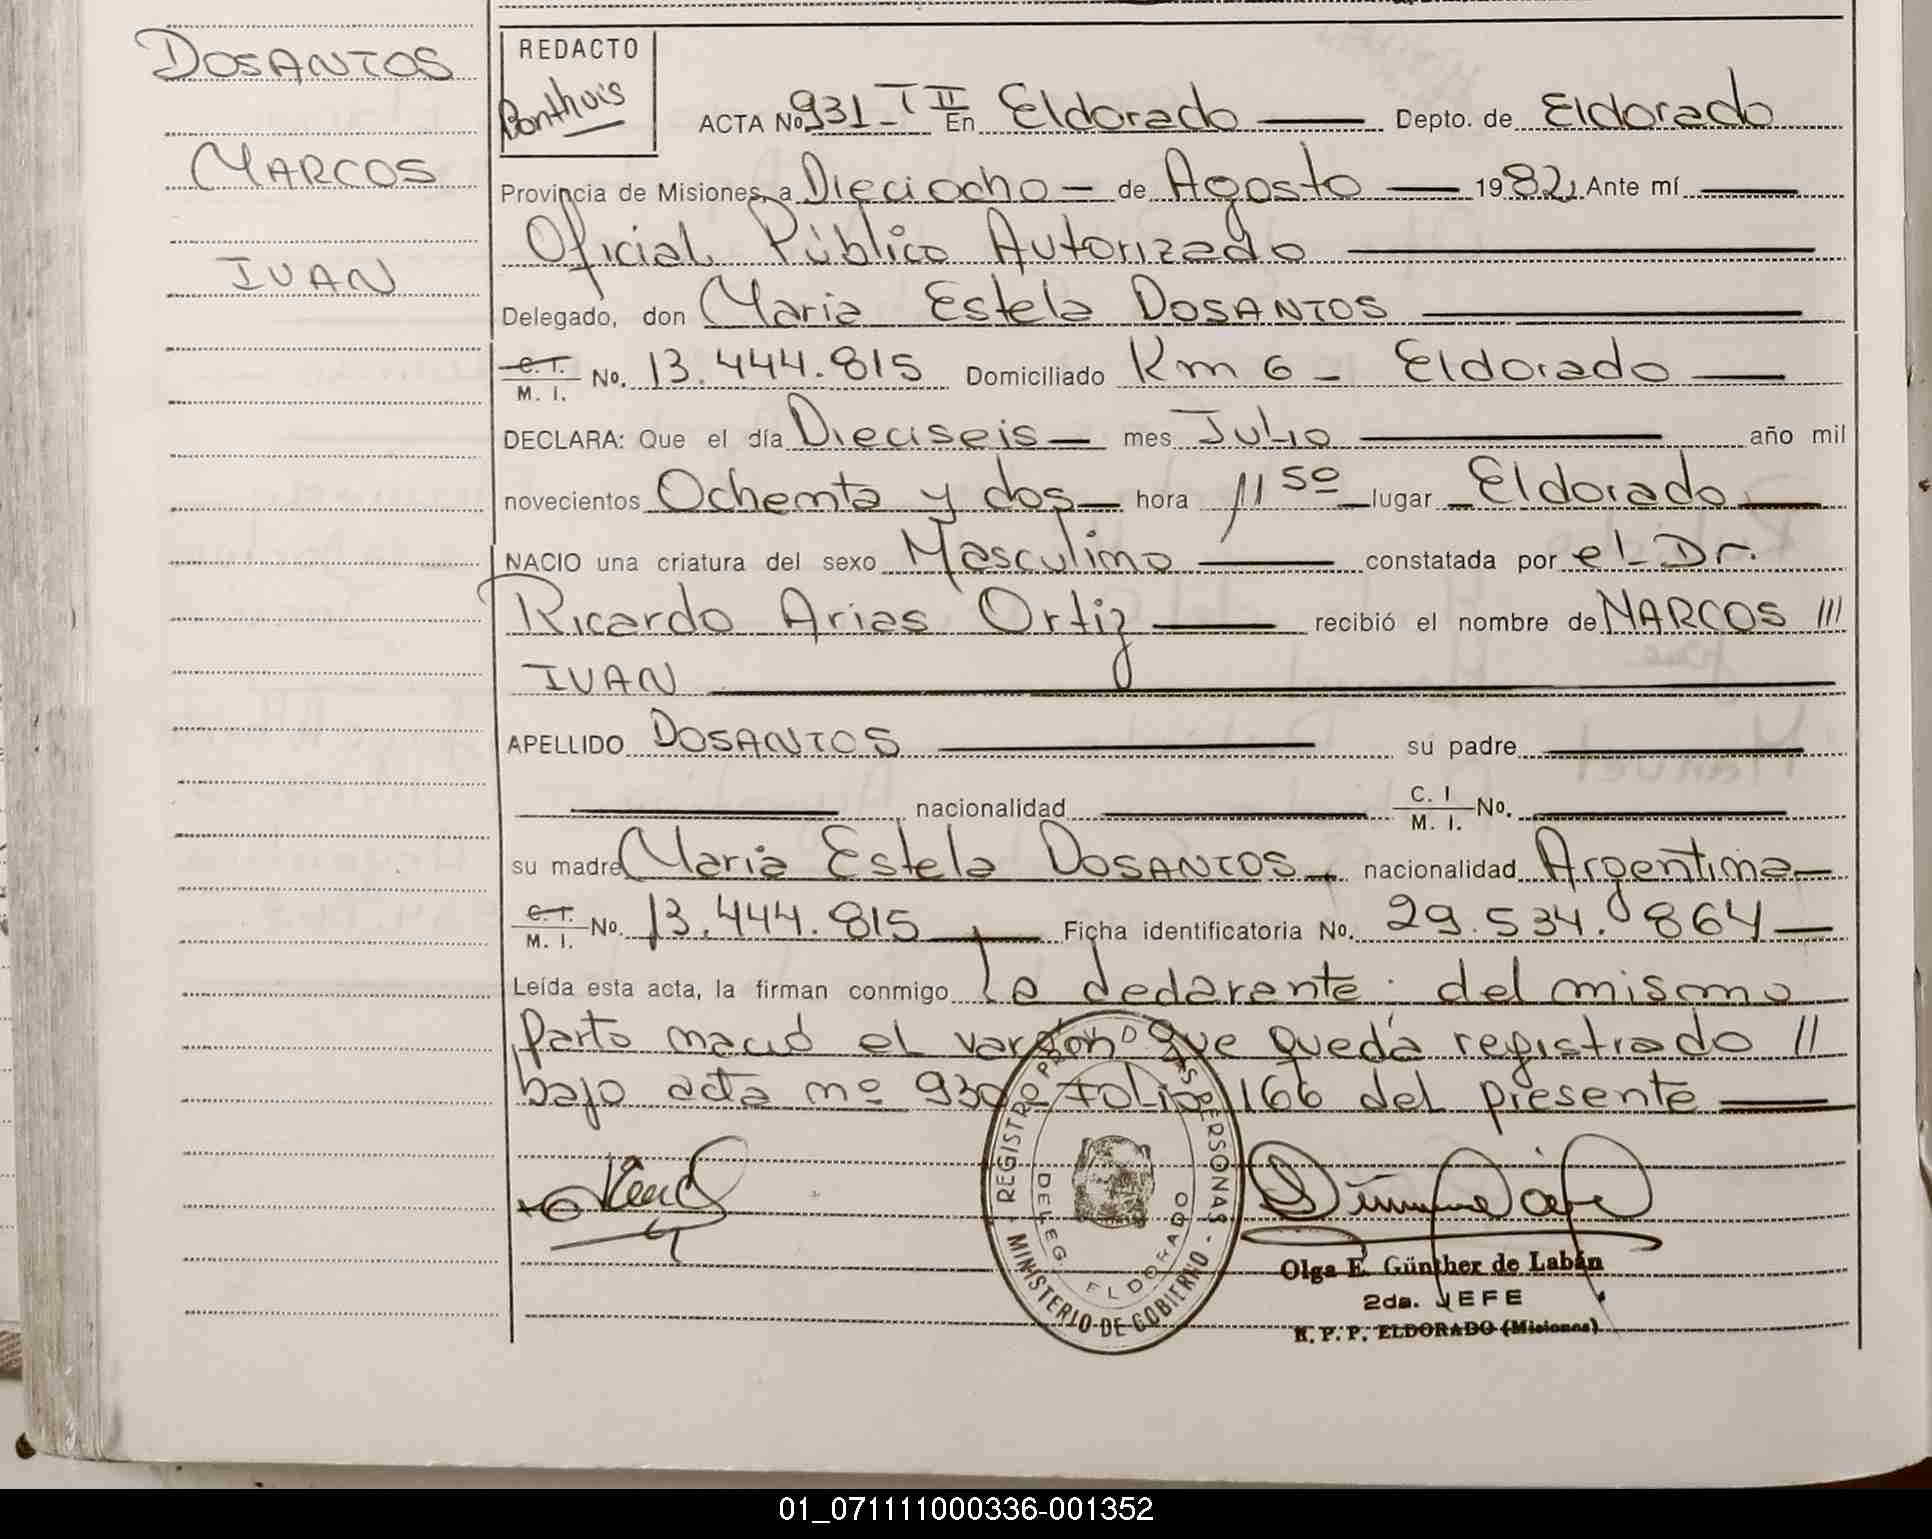 DOSANTOS
MARCOS
IVAN
REDACTO
Bonthuis
ACTA No 931 - T II En Eldorado Depto. de Eldorado
Provincia de Misiones, a Dieciocho - de Agosto 1982, Ante mí
Oficial Público Autorizado
Delegado, don Maria Estela DOSANTOS
C. I. / M. I. No. 13.444.815 Domiciliado Km 6 - Eldorado
DECLARA: Que el día Dieciseis mes Julio año mil
novecientos Ochenta y dos hora 11 50 lugar Eldorado
NACIO una criatura del sexo Masculino constatada por el Dr.
Ricardo Arias Ortiz recibió el nombre de MARCOS ///
IVAN
APELLIDO DOSANTOS su padre
nacionalidad C. I / M. I. No.
su madre Maria Estela DOSANTOS nacionalidad Argentina
C. I. / M. I. No. 13.444.815 Ficha identificatoria No. 29.534.864
Leída esta acta, la firman conmigo la declarante. del mismo
parto nació el varón que queda registrado //
bajo acta nº 930 folio 166 del presente
REGISTRO PERSONAS
DELEG. ELDORADO
MINISTERIO DE GOBIERNO
Olga E. Günther de Labán
2da. JEFE
R. P. P. ELDORADO (Misiones)
01_071111000336-001352